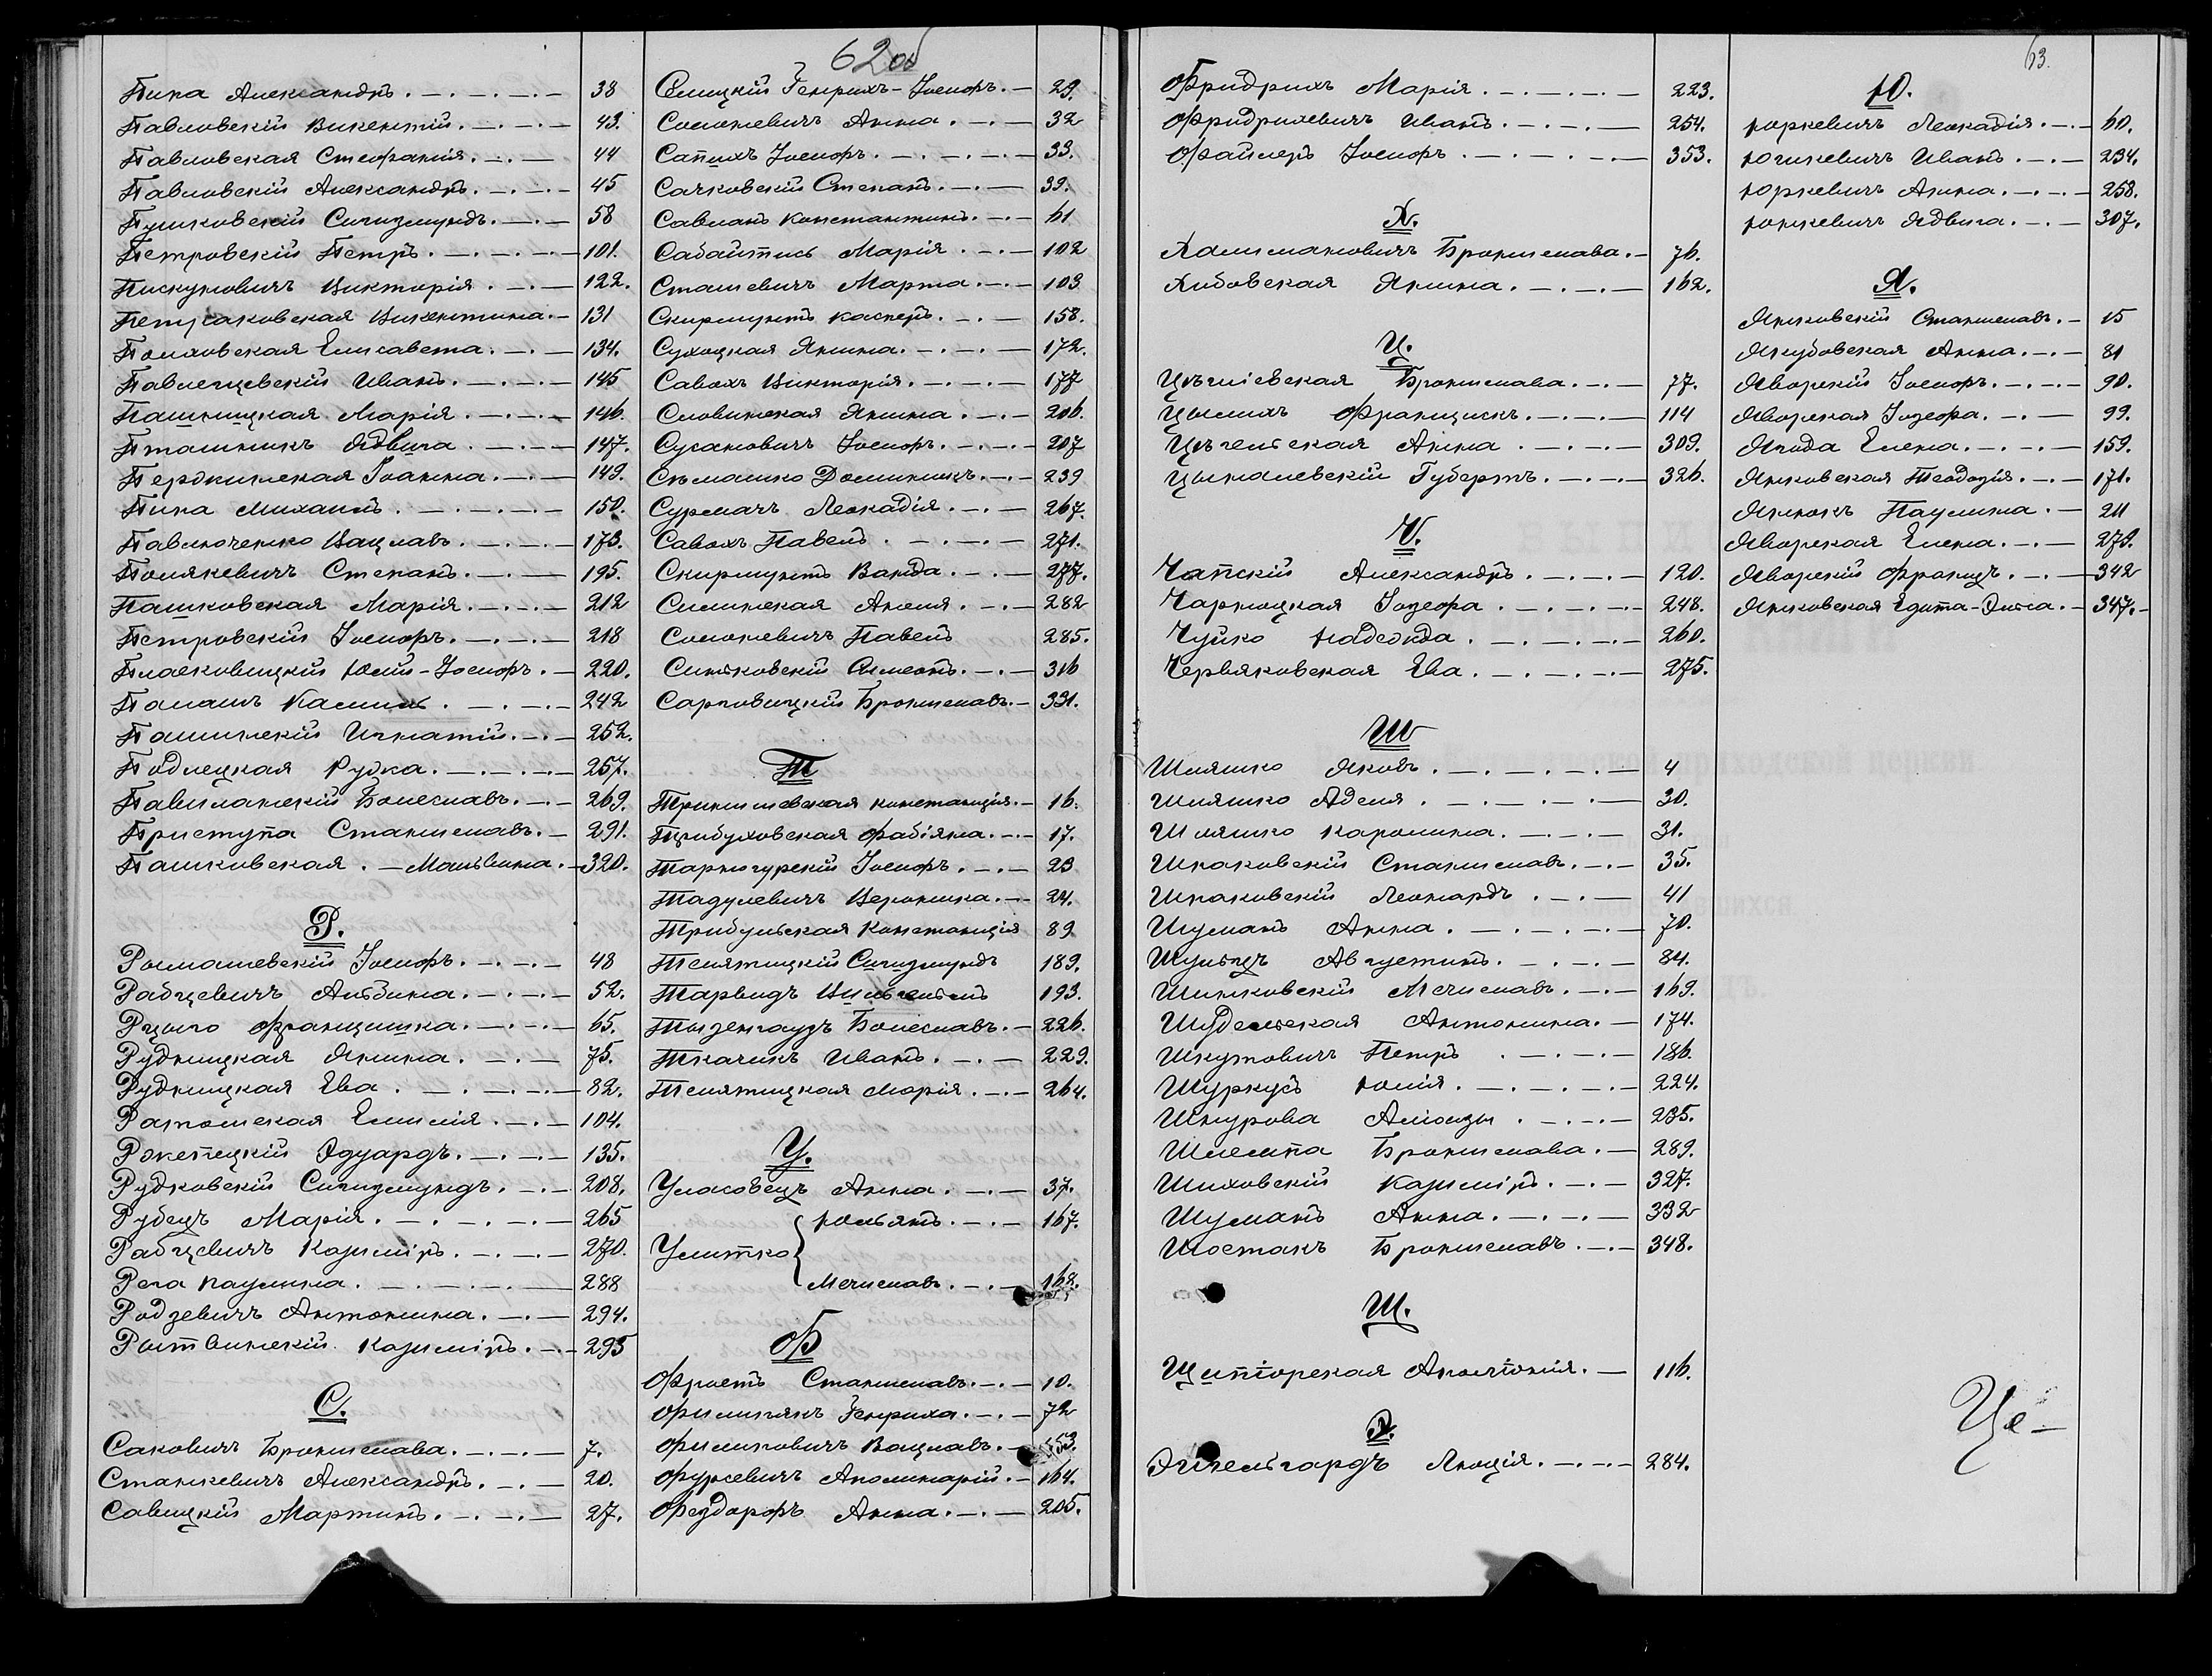 62 об
Пипа Александръ. 38
Павловскій Викентій. 43.
Павловская Стефанія. 44
Павловскій Александръ. 45
Пушковскій Сигизмундъ. 58
Петровскій Петръ. 101.
Пискуновичъ Викторія. 122.
Петрсаковская Викентина. 131
Полховская Елисавета. 134.
Павлецевскій Иванъ. 145
Пашницкая Марія. 146.
Пташникъ Ядвига. 147.
Пержкинская Іоанна. 149.
Пипа Михаилъ. 150.
Павлюченко Вацлавъ. 173.
Полякевичъ Степанъ. 195.
Пашковская Марія. 212
Петровскій Іосифъ. 218
Плаековицкій Юлій-Іосифъ. 220.
242
Пашинскій Игнатій. 252.
257.
Болеславъ. 269.
Приступа Станиславъ. 291.
Пашковская. Мальвина. 320.
Р.
Ромашевскій Іосифъ. 48
Рабцевичъ Альбина. 52.
Францишка. 65.
Рудницкая Янина. 75.
Рудницкая Ева. 82.
Ратомская Емилія. 104.
Ржепецкій Эдуардъ. 135.
Рудковскій Сигизмундъ. 208.
Рубецъ Марія. 265
Рабцевичъ Казиміръ. 270.
Рега Паулина. 288
Родзевичъ Антонина. 294.
Рытвинскій Казиміръ. 295
С.
Саковичъ Брониславa. 7.
Станкевичъ Александръ. 20.
Савицкій Мартинъ. 27.
Селицкій Генрихъ-Іосифъ. 29.
Солоневичъ Анна. 32
Сапихъ Іосифъ. 33.
Сачковскій Степанъ. 39.
Савланъ Константинъ. 61
Сабайтись Марія. 102
Сташевичъ Марта. 103
Скирмунтъ Касперъ. 158.
Сухоцкая Янина. 172.
Савохъ Викторія. 177
Словинская Янина. 206.
Сугановичъ Іосифъ. 207
Съмашко Доминикъ. 239
Сурмачъ Леокадія. 267.
Савохъ Павелъ. 271.
Скирмунтъ Ванда. 277.
Силинская Анеля. 282
Солоневичъ Павелъ 285.
Синьковскій 316
Сарповицкій Брониславъ. 331.
Т
Тринишевская Констанція. 16.
Трибуховская Фабіяна. 17.
Тарногурскій Іосифъ. 23
Тадулевичъ Вероника. 24.
Трибульская Констанція 89
Телятицкій Сигизмундъ 189.
Тарвидъ Вильгельмъ 193.
Тызенгаузъ Болеславъ. 226.
Ткачикъ Иванъ. 229.
Телятицкая Марія. 264.
У.
Уласовецъ Анна. 37.
Юльянъ. 167.
Улитко
Мечиславъ. 168.
Ф
Фростъ Станиславъ. 10.
Филипякъ Генриха. 72
Филиповичъ Вацлавъ. 153.
Фурсевичъ Аполинарій. 164.
Фездорфъ Анна. 205.
63.
Фридрихъ Марія. 223.
Фридрихевичъ Иванъ. 254.
Файлертъ Іосифъ. 353.
Х.
Халимановичъ Бронислава. 76.
Хибовская Янина. 162.
Ц.
Цѣглевская Бронислава. 77.
Францискъ. 114
Цѣгельская Анна. 309.
Цымалевскій Губертъ. 326.
Ч.
Чапскій Александръ. 120.
Чарноцкая Іозефа. 248.
Чуйко Надежда. 260.
Червяковская Ева. 275.
Ш
Шляшко Яковъ. 4
Шляшко Аделя. 30.
Шляшко Каролина. 31.
Шпаковскій Станиславъ. 35.
Шпаковскій Леонардъ. 41
Шуманъ Анна. 70.
Шульцъ Августинъ. 84.
Шимковскій Мечиславъ. 169.
Шудельская Антонина. 174.
Шкутовичъ Петръ. 186.
Шуркусъ Юлія. 224.
Шнурова Алоизы. 235.
Шлемпа Бронислава. 289.
Шиховскій Казиміръ. 327.
Шуманъ Анна. 332
Шостакъ Брониславъ. 348.
Щ.
Щипіорская Аполлонія. 116.
Э.
Энгельгардъ Люція. 284.
Ю.
Юркевичъ Леокадія. 60.
Югикевичъ Иванъ. 234.
Юркевичъ Анна. 258.
Юшкевичъ Ядвига. 307.
Я.
Янковскій Станиславъ. 15
Якубовская Анна. 81
Яворскій Іосифъ. 90.
Яворская Іозефа. 99.
Ягода Елена. 159.
Янковская Теодозія. 171.
Янюкъ Паулина. 211
Яворская Елена. 279.
Яворскій Францъ. 342
Янковская Эдита-Эльза. 347.